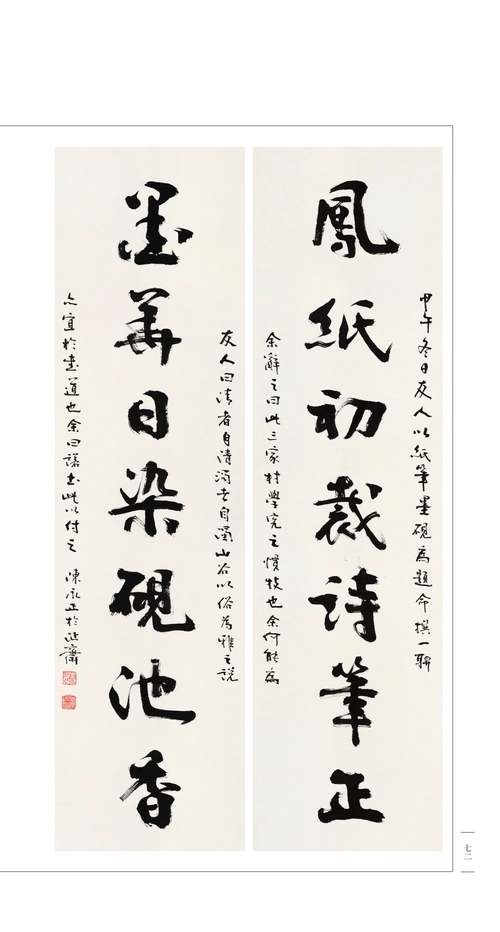 鳳紙初裁詩筆正
甲午冬日友人以紙筆墨硯為題命撰一聯
余辭之曰此三家村學究之慣技也余何能為
墨華日染硯池香
友人曰清者自清濁者自濁山谷以俗為雅之說
亦宜於書道也余曰諾書此以付之 陳永正於沚齋
七二